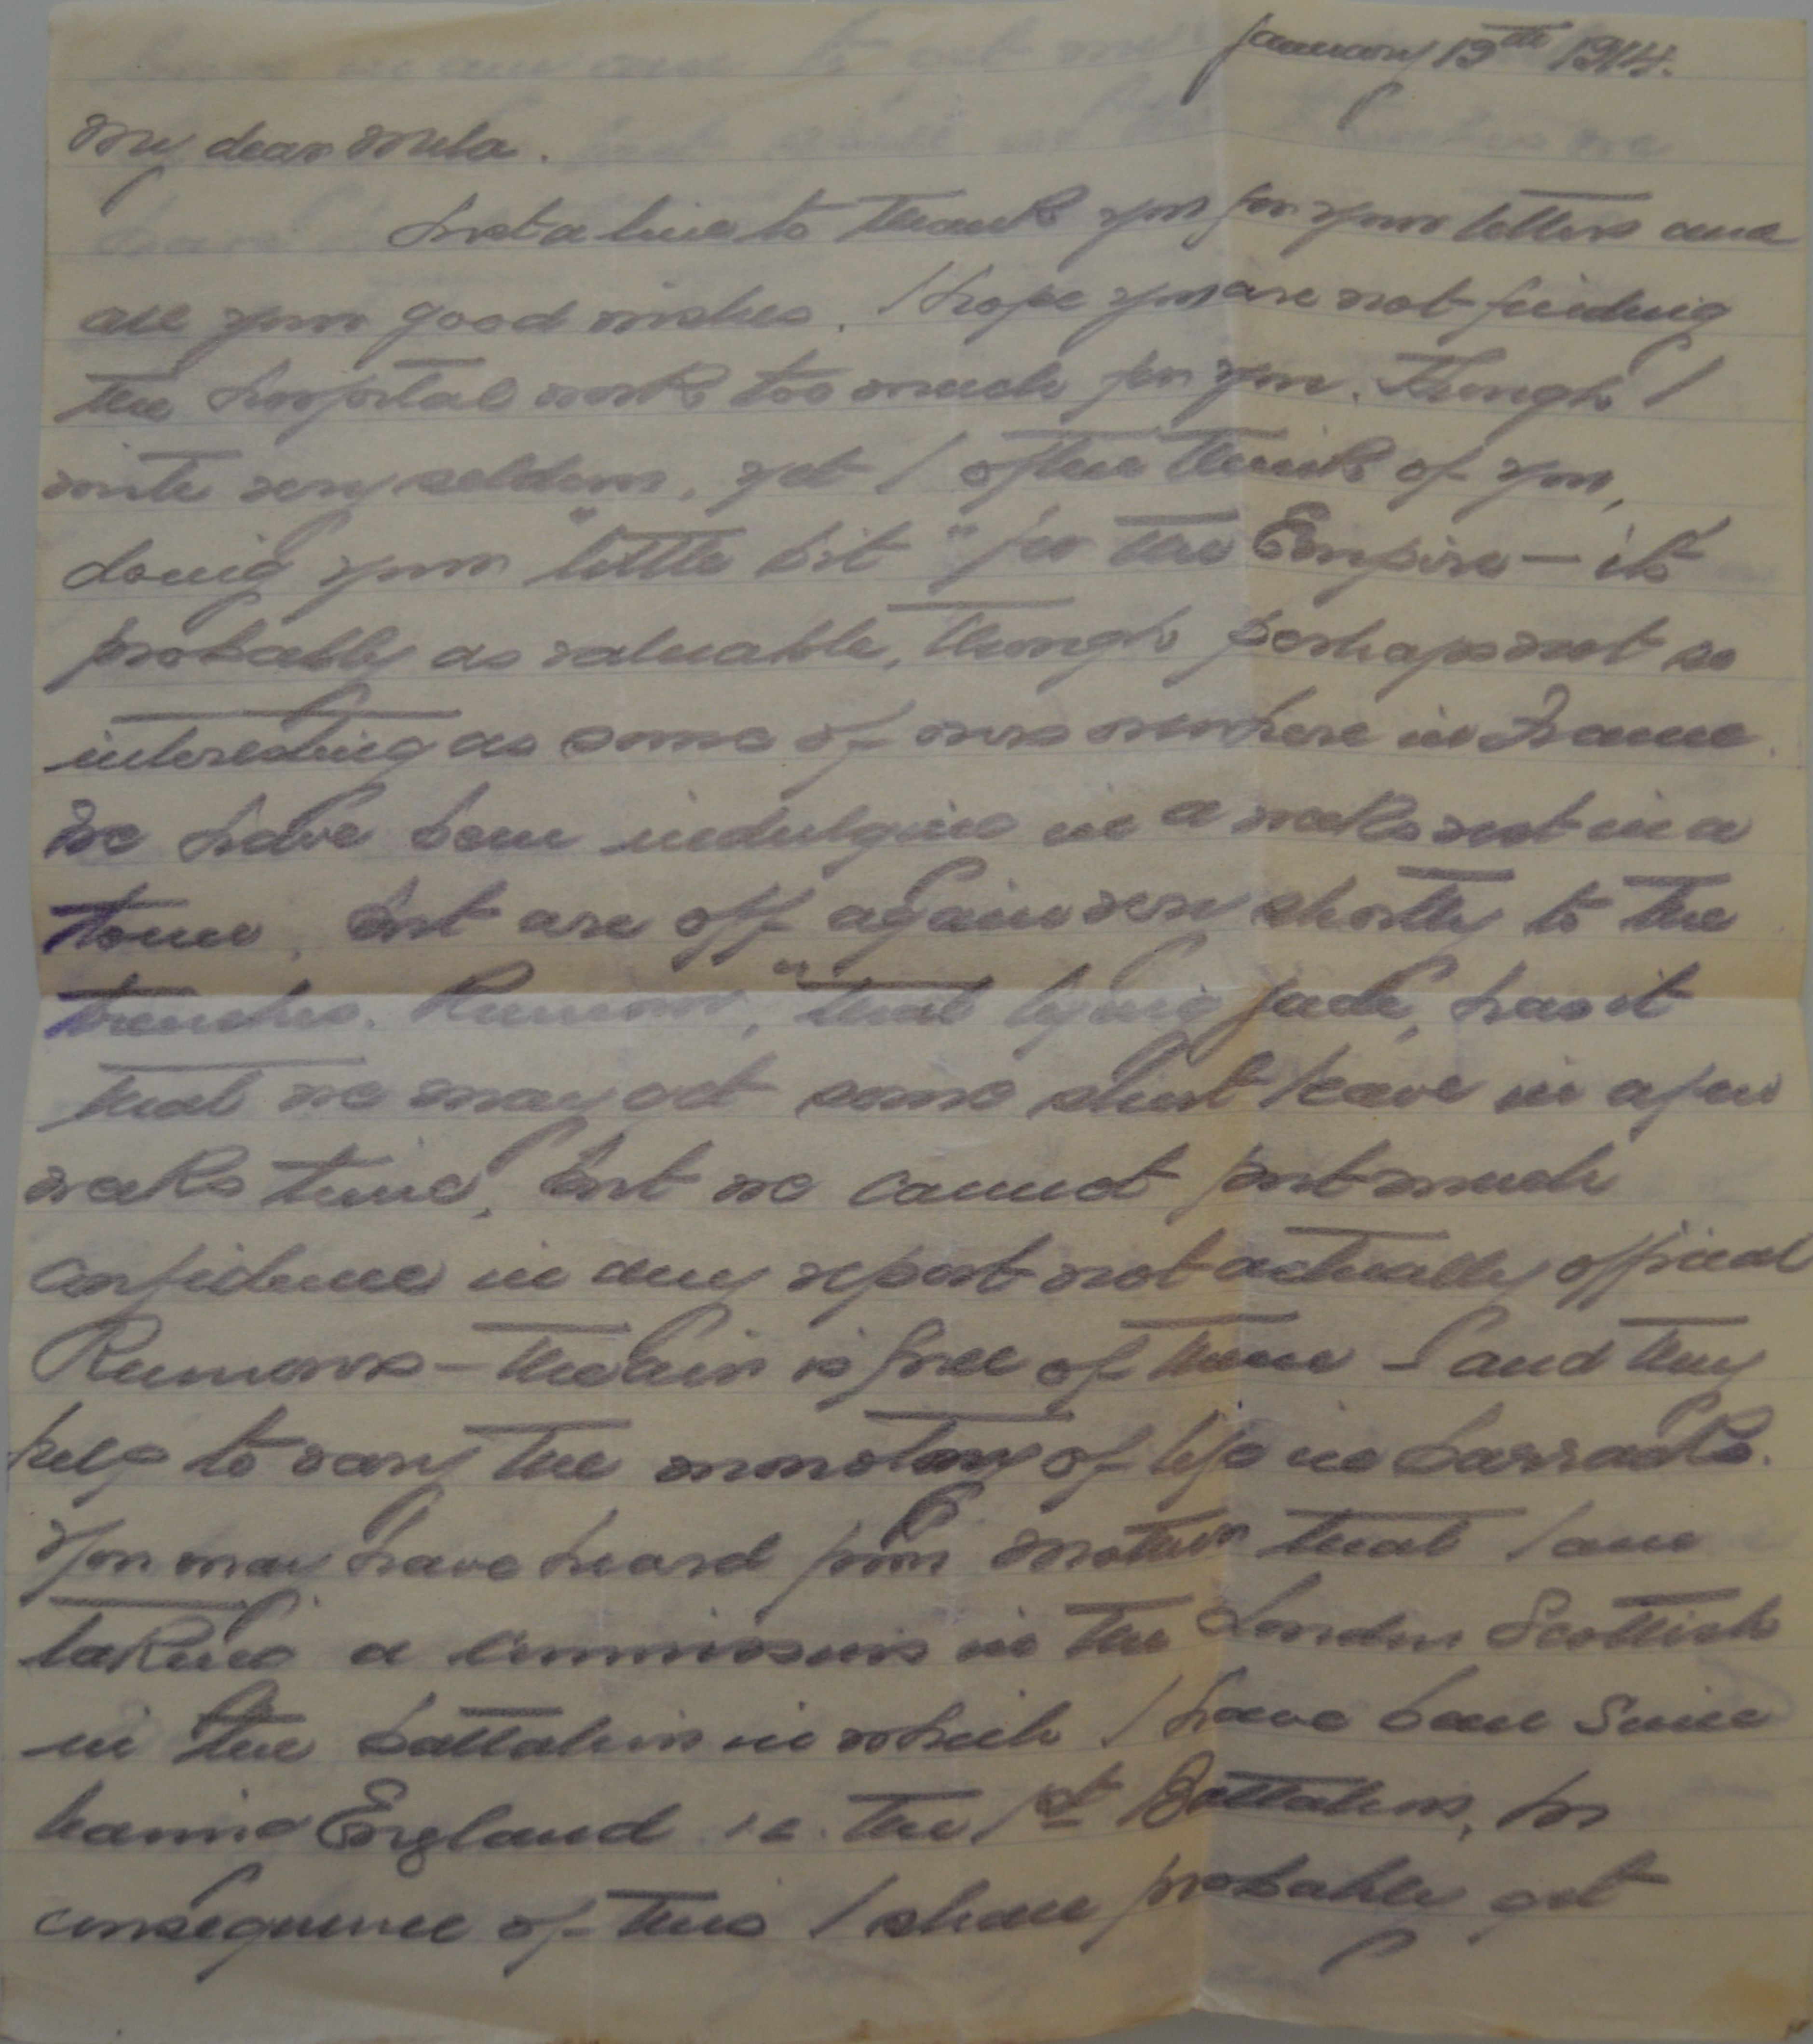 January 19th 1914.
My dear Mela.
Just a line to thank you for your letters and
all your good wishes. I hope you are not finding
the hospital work too much for you. Though I
write very seldom, yet I often think of you,
doing your "little bit" for the Empire – it's
probably as valuable, though perhaps not so
interesting as some of ours over here in France.
We have been indulging in a weeks rest in a
town, but are off again very shortly to the
trenches. Rumour, "that lying jade", has it
that we may get some short leave in a few
weeks time, but we cannot put much
confidence in any report not actually official
Rumours – the air is full of them – and they
help to vary the monotony of life in barracks.
You may have heard from mother that I am
taking a commission in the London Scottish
in the battalion in which I have been since
leaving England i.e. the 1st Battalion, In
consequence of this I shall probably get